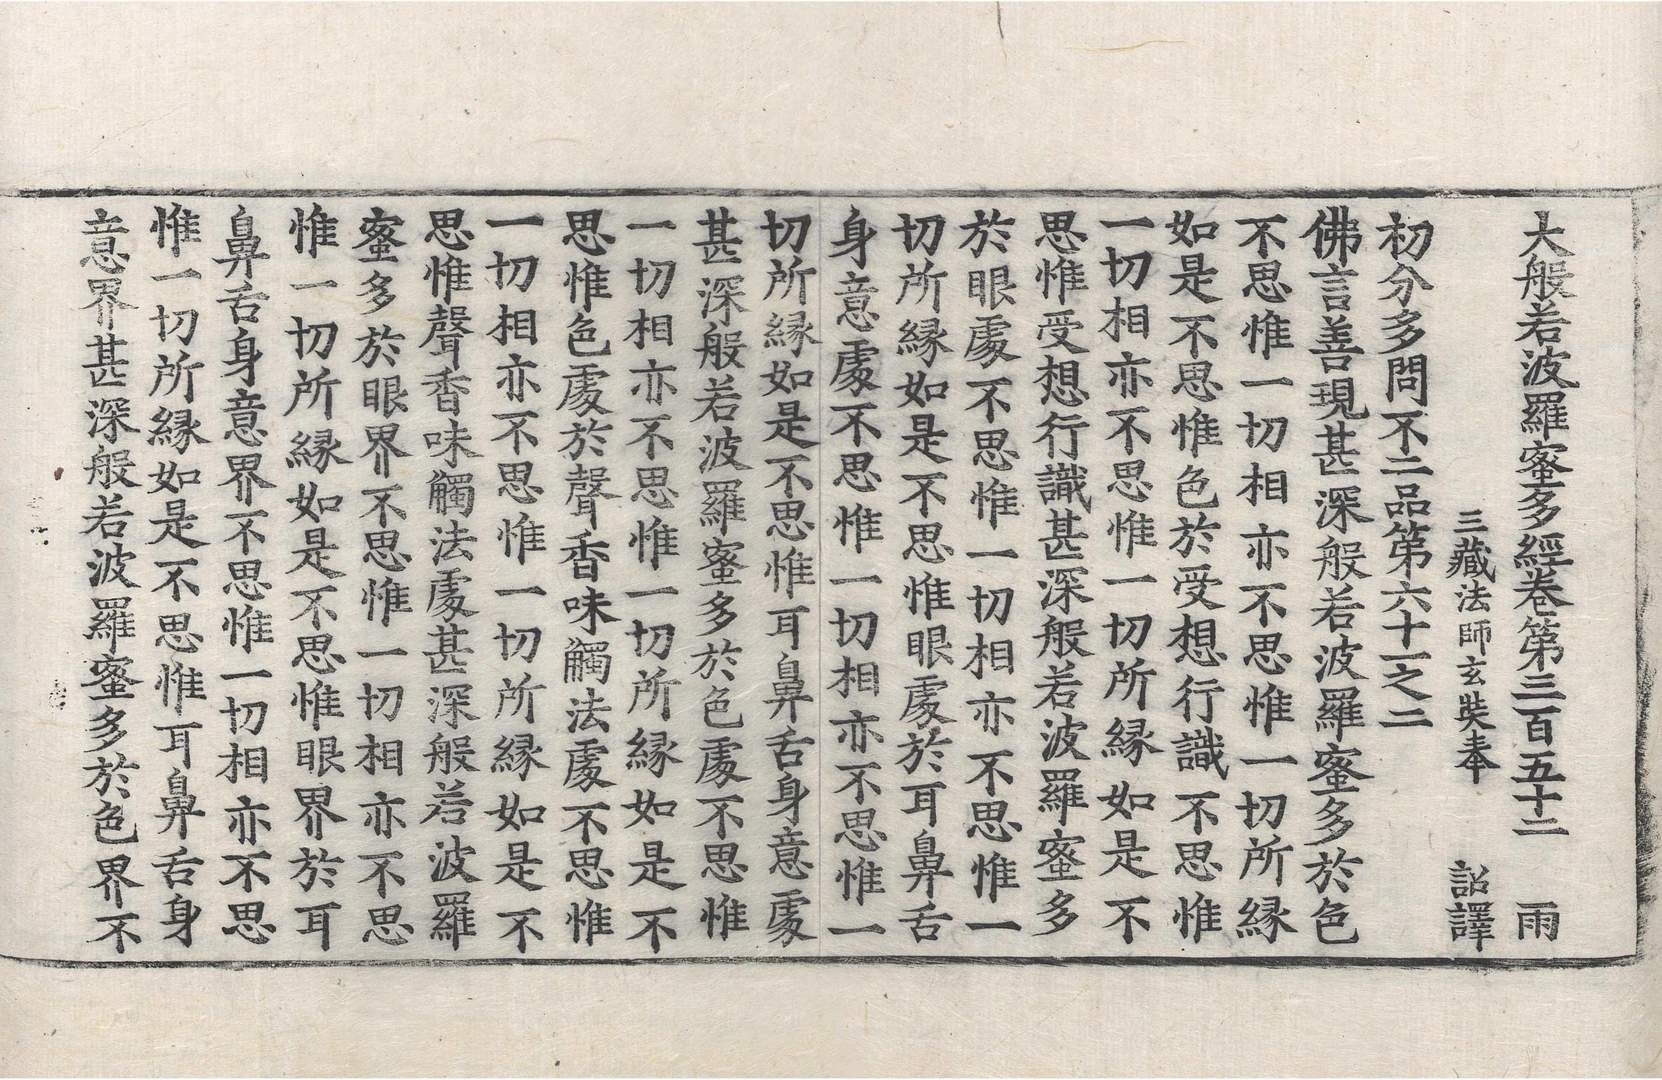 大般若波羅蜜多經卷第三百五十二　雨
三藏法師玄奘奉　詔譯
初分多問不二品第六十一之二
佛言善現甚深般若波羅蜜多於色
不思惟一切相亦不思惟一切所縁
如是不思惟色於受想行識不思惟
一切相亦不思惟一切所縁如是不
思惟受想行識甚深般若波羅蜜多
於眼處不思惟一切相亦不思惟一
切所縁如是不思惟眼處於耳鼻舌
身意處不思惟一切相亦不思惟一
切所縁如是不思惟耳鼻舌身意處
甚深般若波羅蜜多於色處不思惟
一切相亦不思惟一切所縁如是不
思惟色處於聲香味觸法處不思惟
一切相亦不思惟一切所縁如是不
思惟聲香味觸法處甚深般若波羅
蜜多於眼界不思惟一切相亦不思
惟一切所縁如是不思惟眼界於耳
鼻舌身意界不思惟一切相亦不思
惟一切所縁如是不思惟耳鼻舌身
意界甚深般若波羅蜜多於色界不